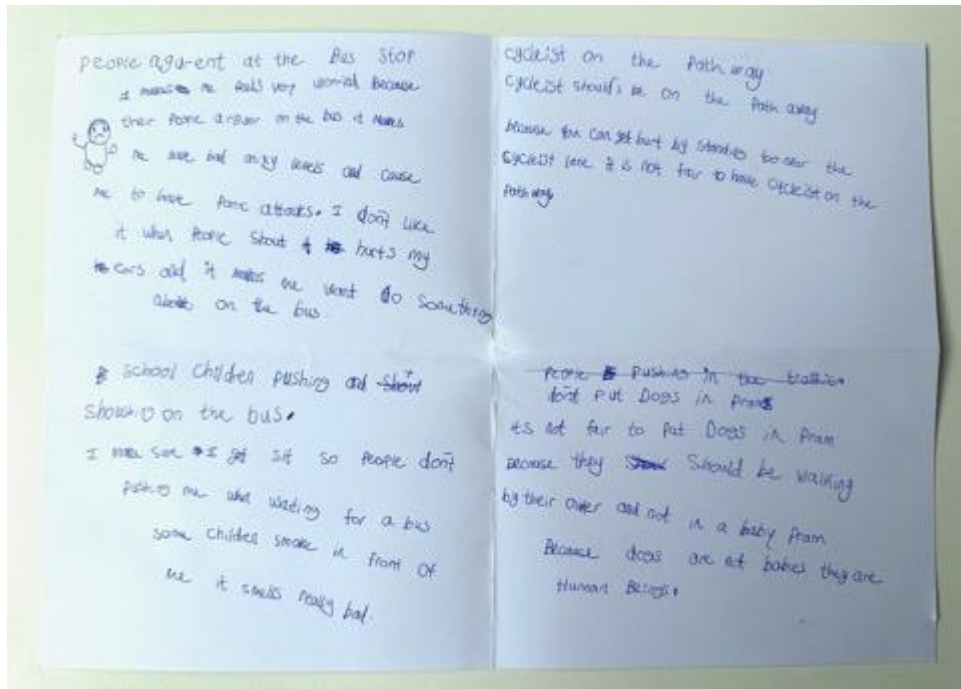 people agurent at the Bus Stop
I me feels very worried because
their people on the bus it makes
me have bad levels and cause
me to have Panic attacks. I don't like
it when People Shout it hurts my
ears and it makes me want do something
on the bus.
School Children Pushing and
Shouting on the bus.
I make sure I get sit so People don't
Pushing me when waiting for a bus
some Childen smoke in front of
me it smells really bad.
cycleist on the Path way
cycleist should's be on the Path away
because you can get hurt by standing too near the
cycleist lane it is not fair to have cycleist on the
Path way
People Pushing in the
don't Put Dogs in Prams
its not fair to Put Dogs in Pram
Because they Should be walking
by their owner and not in a baby Pram
Because dogs are not babies they are
Human Beings.